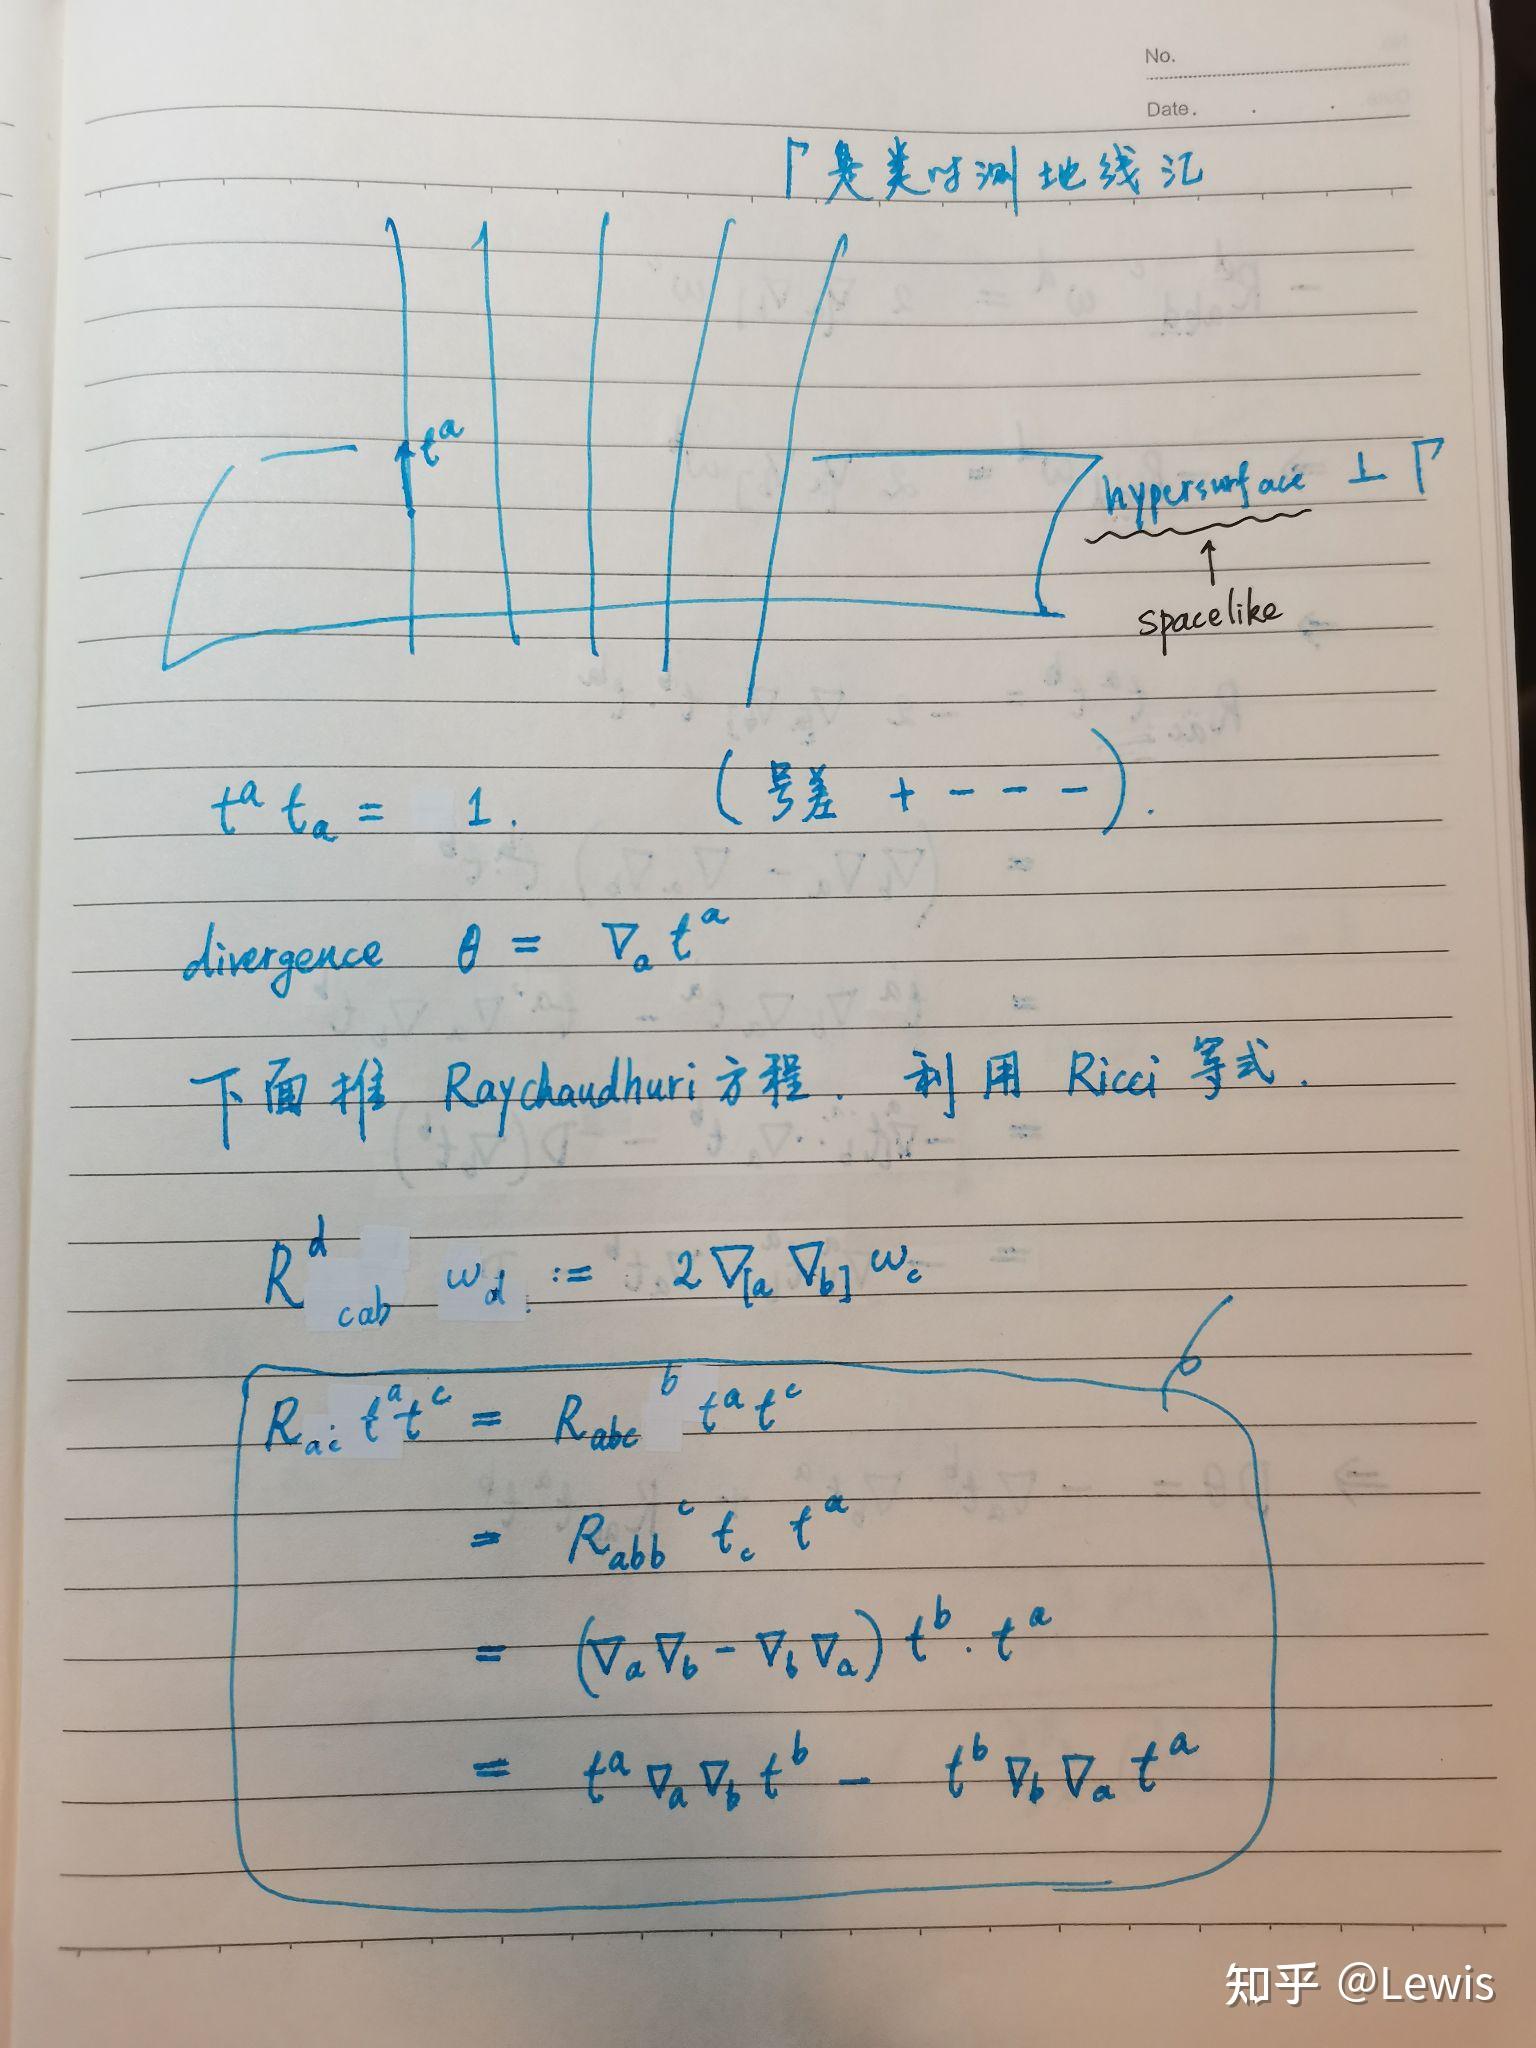 No.
Date.
Γ是类时测地线汇
t^a
hypersurface ⊥ Γ
spacelike
t^a t_a = 1. (号差 + - - - ).
divergence θ = ∇_a t^a
下面推 Raychaudhuri 方程. 利用 Ricci 等式.
R^d_{cab} ω_d := 2∇_{[a}∇_{b]} ω_c
R_{ac} t^a t^c = R_{abc}^b t^a t^c
= R_{abb}^c t_c t^a
= (∇_a ∇_b - ∇_b ∇_a) t^b · t^a
= t^a ∇_a ∇_b t^b - t^b ∇_b ∇_a t^a
知乎 @Lewis